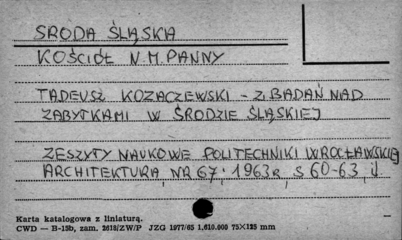 SRODA ŚLĄSKA
KOŚCIÓŁ N.M.PANNY
TADEUSZ KOZACZEWSKI - Z BADAŃ NAD
ZABYTKAMI W ŚRODZIE ŚLĄSKIEJ
ZESZYTY NAUKOWE POLITECHNIKI WROCŁAWSKIEJ
ARCHITEKTURA NR 67. 1963R. S 60-63
Karta katalogowa z liniaturą.
CWD — B-15b, zam. 2618/ZW/P JZG 1977/65 1,610.000 75×125 mm